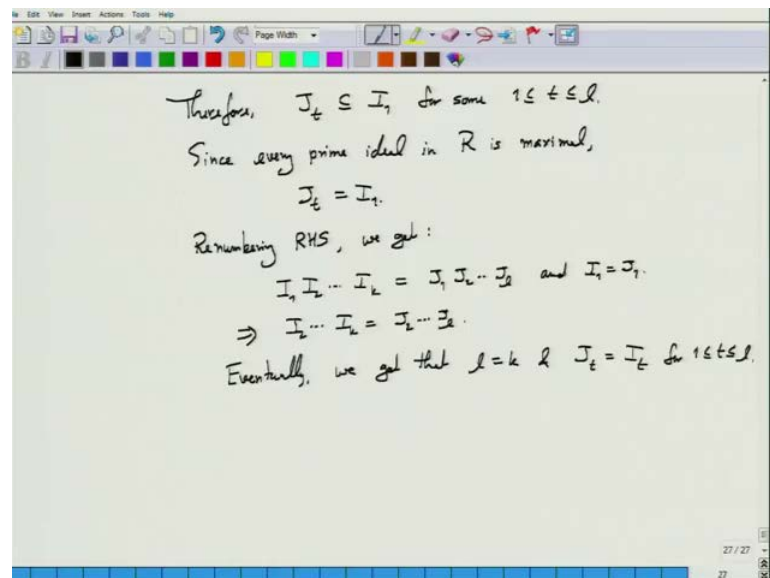 le Edit View Insert Actions Tools Help
Page Width
B I
Therefore, J_t ⊆ I_1 for some 1 ≤ t ≤ l.
Since every prime ideal in R is maximal,
J_t = I_1.
Renumbering RHS, we get:
I_1 I_2 ... I_k = J_1 J_2 ... J_l and I_1 = J_1.
⇒ I_2 ... I_k = J_2 ... J_l.
Eventually, we get that l = k & J_t = I_t for 1 ≤ t ≤ l.
27 / 27
27